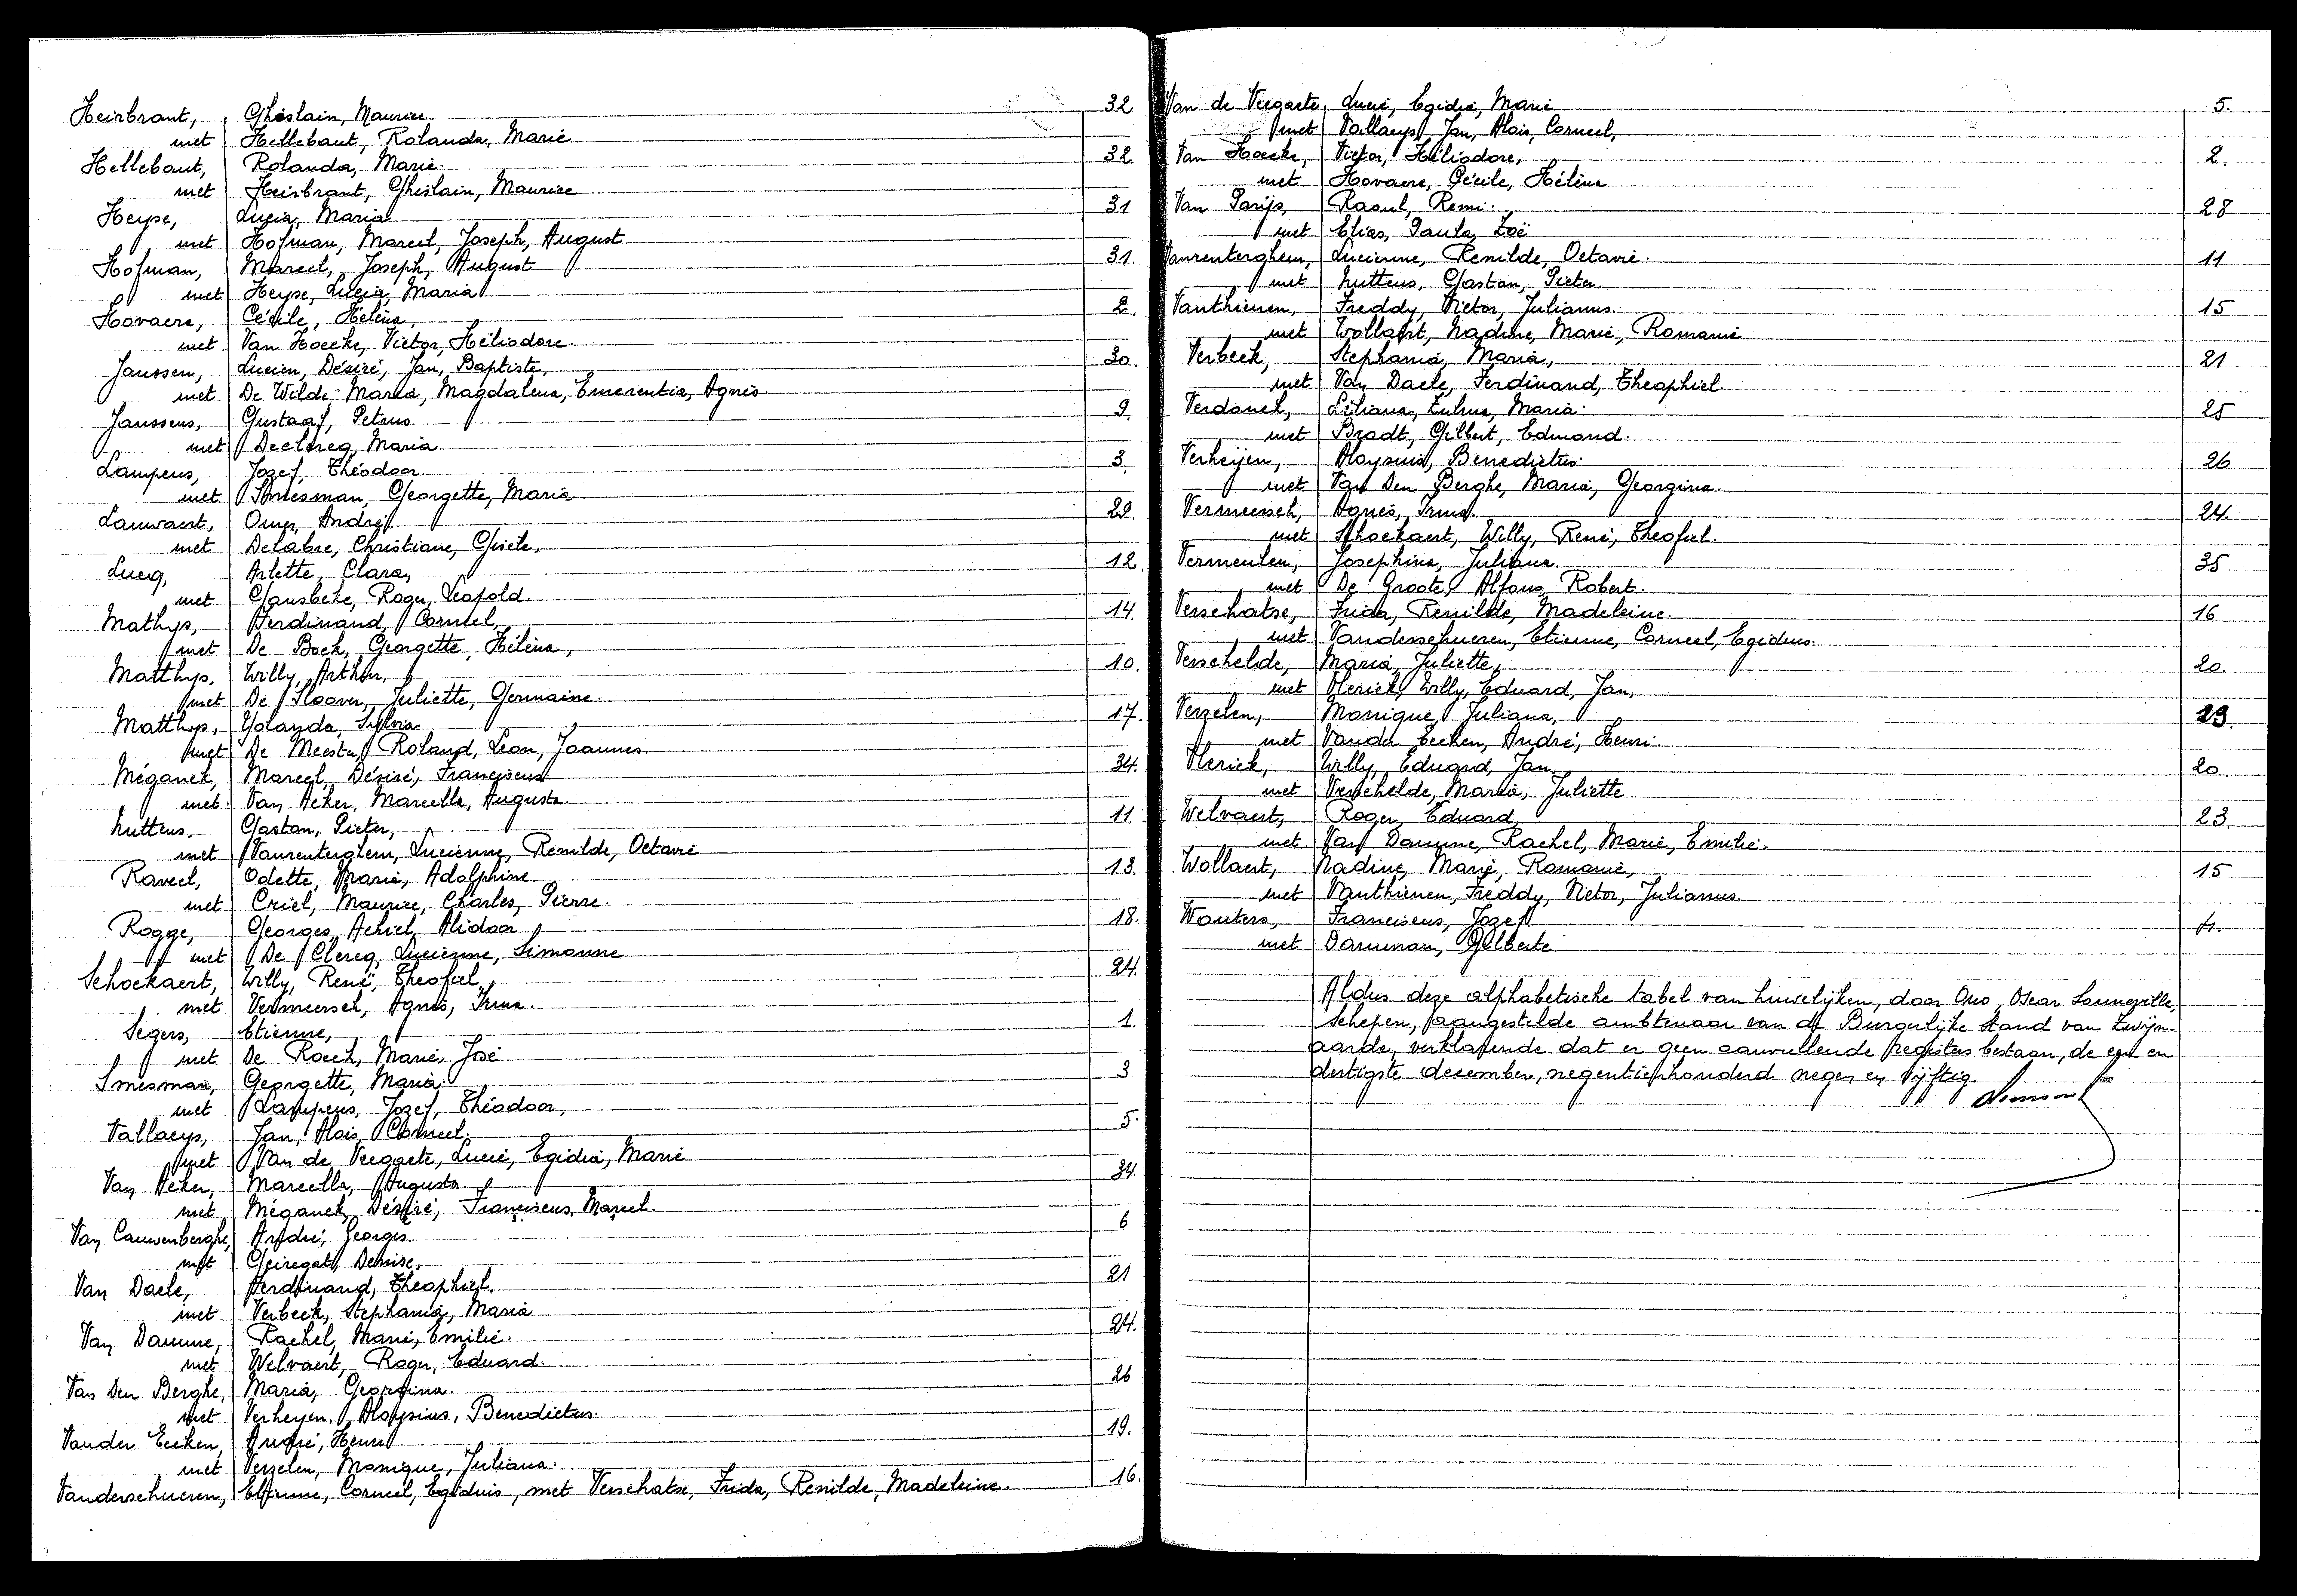 Heirbrant, Ghislain, Maurice. 32
met Hellebaut, Rolanda, Marie
Hellebaut, Rolanda, Marie. 32
met Heirbrant, Ghislain, Maurice
Heyse, Lucia, Maria 31
met Hofman, Marcel, Joseph, August
Hofman, Marcel, Joseph, August 31.
met Heyse, Lucia, Maria
Hovaere, Cécile, Hélèna, 2.
met Van Hoecke, Victor, Héliodore.
Janssen, Lucien, Désiré, Jan, Baptiste, 30.
met De Wilde Maria, Magdalena, Emerentia, Agnes.
Janssens, Gustaaf, Petrus 9.
met Declercq, Maria
Lampens, Jozef, Théodoor. 3.
met Smesman, Georgette, Maria
Lauwaert, Omer, André 29.
met Delabre, Christiane, Gisèle,
Lucq, Arlette, Clara, 12.
met Gansbeke, Roger, Leopold.
Mathys, Ferdinand, Corneel, 14.
met De Bock, Georgette, Hélèna,
Matthys, Willy, Arthur, 10.
met De Sloover, Juliette, Germaine.
Matthys, Yolanda, Sylvia 17.
met De Meester, Roland, Leon, Joannes
Méganck, Marcel, Désiré, Franciscus 34.
met Van Acker, Marcella, Augusta.
Nuttens, Gaston, Pieter, 11.
met Vanrenterghem, Lucienne, Renilde, Octavie
Raveel, Odette, Marie, Adolphine. 13.
met Criel, Maurice, Charles, Pierre.
Rogge, Georges, Achiel, Alidoor 18.
met De Clercq, Lucienne, Simonne
Schockaert, Willy, René, Theofiel 24.
met Vermeersch, Agnes, Irma.
Segers, Etienne, 1.
met De Roeck, Marie, José
Smesman, Georgette, Maria. 3
met Lampens, Jozef, Théodoor,
Tallaeys, Jan, Alois, Corneel. 5.
met Van de Veegaete, Lucie, Egidia, Marie
Van Acker, Marcella, Augusta. 34.
met Méganck, Désiré, Franciscus, Marcel.
Van Cauwenberghe, André, Georges. 6
met Geiregat, Denise.
Van Daele, Ferdinand, Theophiel. 21
met Verbeek, Stephania, Maria
Van Damme, Rachel, Marie, Emilie. 24.
met Welvaert, Roger, Eduard.
Van Den Berghe, Maria, Georgina. 26
met Verheyen, Aloysius, Benedictus.
Vander Eecken, André, Henri 19.
met Verzelen, Monique, Juliana.
Vanderschueren, Etienne, Corneel, Egiduis, met Verschatse, Frida, Renilde, Madeleine. 16.
Van de Veegaete, Lucie, Egidia, Marie 5.
met Tallaeys, Jan, Alois, Corneel,
Van Hoecke, Victor, Héliodore, 2.
met Hovaere, Cécile, Hélèna
Van Parijs, Raoul, Remi. 28
met Elias, Paula, Zoë
Vanrenterghem, Lucienne, Renilde, Octavie. 11
met Nuttens, Gaston, Pieter.
Vanthienen, Freddy, Victor, Julianus. 15
met Wollaert, Nadine, Marie, Romanie
Verbeek, Stephania, Maria, 21
met Van Daele, Ferdinand, Theophiel.
Verdonck, Liliana, Zulma, Maria. 25
met Bradt, Gilbert, Edmond.
Verheijen, Aloysius, Benedictus. 26
met Van Den Berghe, Maria, Georgina.
Vermeersch, Agnes, Irma. 24.
met Schockaert, Willy, René, Theofiel.
Vermeulen, Josephina, Juliana. 35
met De Groote, Alfons, Robert.
Verschatse, Frida, Renilde, Madeleine. 16
met Vanderschueren, Etienne, Corneel, Egidius.
Verschelde, Maria, Juliette, 20.
met Vlerick, Willy, Eduard, Jan,
Verzelen, Monique, Juliana, 19.
met Vander Eecken, André, Henri.
Vlerick, Willy, Eduard, Jan. 20
met Verschelde, Maria, Juliette
Welvaert, Roger, Eduard 23.
met Van Damme, Rachel, Marie, Emilie.
Wollaert, Nadine, Marie, Romanie, 15
met Vanthienen, Freddy, Victor, Julianus.
Wouters, Franciscus, Jozef 4.
met Damman, Gilberte.
Aldus deze alphabetische tabel van huwelijken, door Ons, Oscar Lanneville,
schepen, aangestelde ambtenaar van de Burgerlijke Stand van Zwijn-
aarde, verklarende dat er geen aanvullende registers bestaan, de een en
dertigste december, negentienhonderd negen en vijftig.